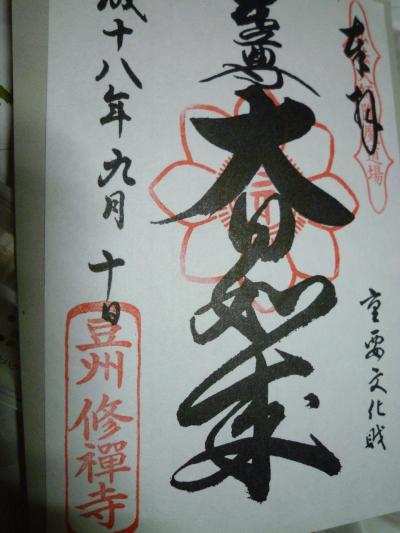 奉拝
道場
重要文化財
本尊
大日如来
成十八年九月十日
豆州修禪寺